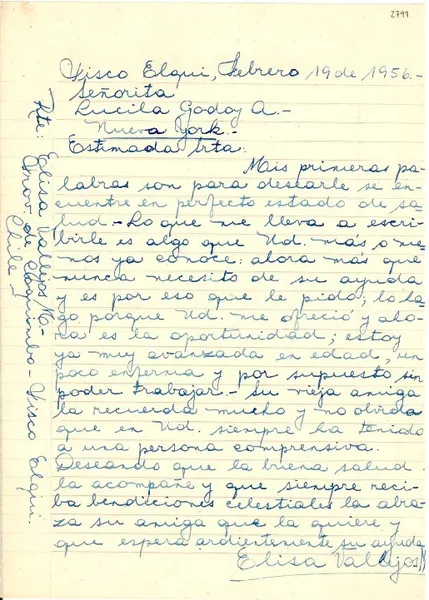 2799
Pisco Elqui, Febrero 19 de 1956.-
Señorita
Lucila Godoy A.-
Nueva York.-
Estimada Srta:
Mis primeras pa-
labras son para desearle se en-
cuentre en perfecto estado de sa-
lud.- Lo que me lleva a escri-
birle es algo que Ud. más o me-
nos ya conoce: ahora más que
nunca necesito de su ayuda
y es por eso que le pido; lo ha-
go porque Ud. me ofreció y aho-
ra es la oportunidad; estoy
ya muy avanzada en edad, un
poco enferma y por supuesto sin
poder trabajar.- Su vieja amiga
la recuerda mucho y no olvida
que en Ud. siempre ha tenido
a una persona comprensiva.
Deseando que la buena salud
la acompañe y que siempre reci-
ba bendiciones celestiales la abra-
za su amiga que la quiere y
que espera ardientemente su ayuda
Elisa Vallejos
Rte: Elisa Vallejos M.-
Prov. de Coquimbo - Pisco Elqui.
Chile -